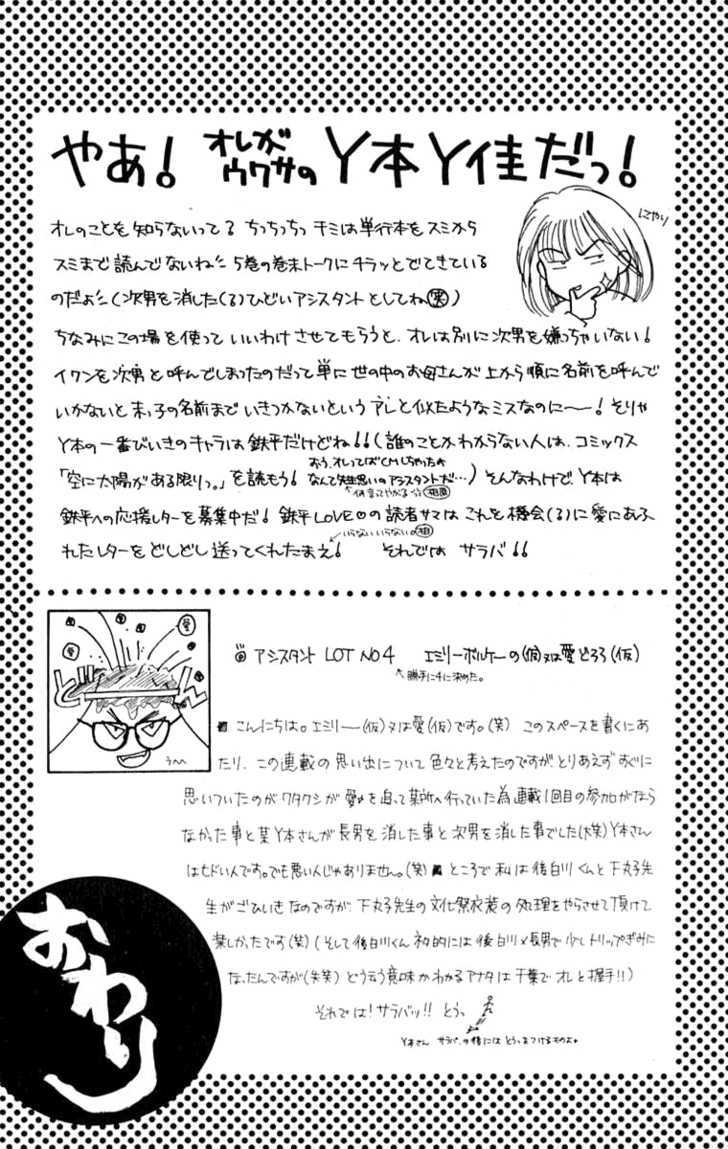 やあ! オレが ウワサの Y本Y佳だっ!
にやり
オレのことを知らないってる ちっちっちっ キミは単行本をスミから
スミまで読んでないね!! 5巻の巻末トークにチラッとでてきている
のだよ!!(次男を消した(る)ひどいアシスタントとしてね(笑))
ちなみにこの場を使っていいわけさせてもらうと、オレは別に次男を嫌っちゃいない!
イワンを次男と呼んでしまったのだって単に世の中のお母さんが上から順に名前を呼んで
いかないと末っ子の名前までいきつかないというアレと似たようなミスなのに──!そりゃ
Y本の一番びいきのキャラは鉄平だけどね!!(誰のことかわからない人は、コミックス
「空に太陽がある限りっ。」を読もう!
おう、オレってばCMしちゃったぜ
なんて先生思いのアシスタントだ…)そんなわけで、Y本は
何言ってやがる
鉄平への応援レターを募集中だ!鉄平LOVE♡の読者サマはこれを機会(る)に愛にあふ
れたレターをどしどし送ってくれたまえ! それでは サラバ!!
いらないいらない
アシスタント LOT NO4 エミリーボルケーの(仮)又は愛どろろ(仮)
勝手に4に決めた。
愛
どーん
うへへ
こんにちは。エミリー(仮)又は愛(仮)です。(笑) このスペースを書くにあ
たり、この連載の思い出について色々と考えたのですが、とりあえずすぐに
思いついたのがワタクシが愛を追って某所へ行っていた為連載1回目の参加がなら
なかった事と某Y本さんが長男を消した事と次男を消した事でした(大笑)Y本さん
はヒドイ人です。でも悪い人じゃありません。(笑) ところで私は後白川くんと下丸子先
生がごひいきなのですが下丸子先生の文化祭衣装の処理をやらせて頂けて
楽しかったです(笑)(そして後白川くんネタ的には後白川×長男で少しトリップぎみに
なったんですが(失笑)どう云う意味かわかるアナタは千葉でオレと握手!!)
それでは!サラバッ!! とうっ
Y本さん サラバ、の後には とうっをつけるものよ。
おわり